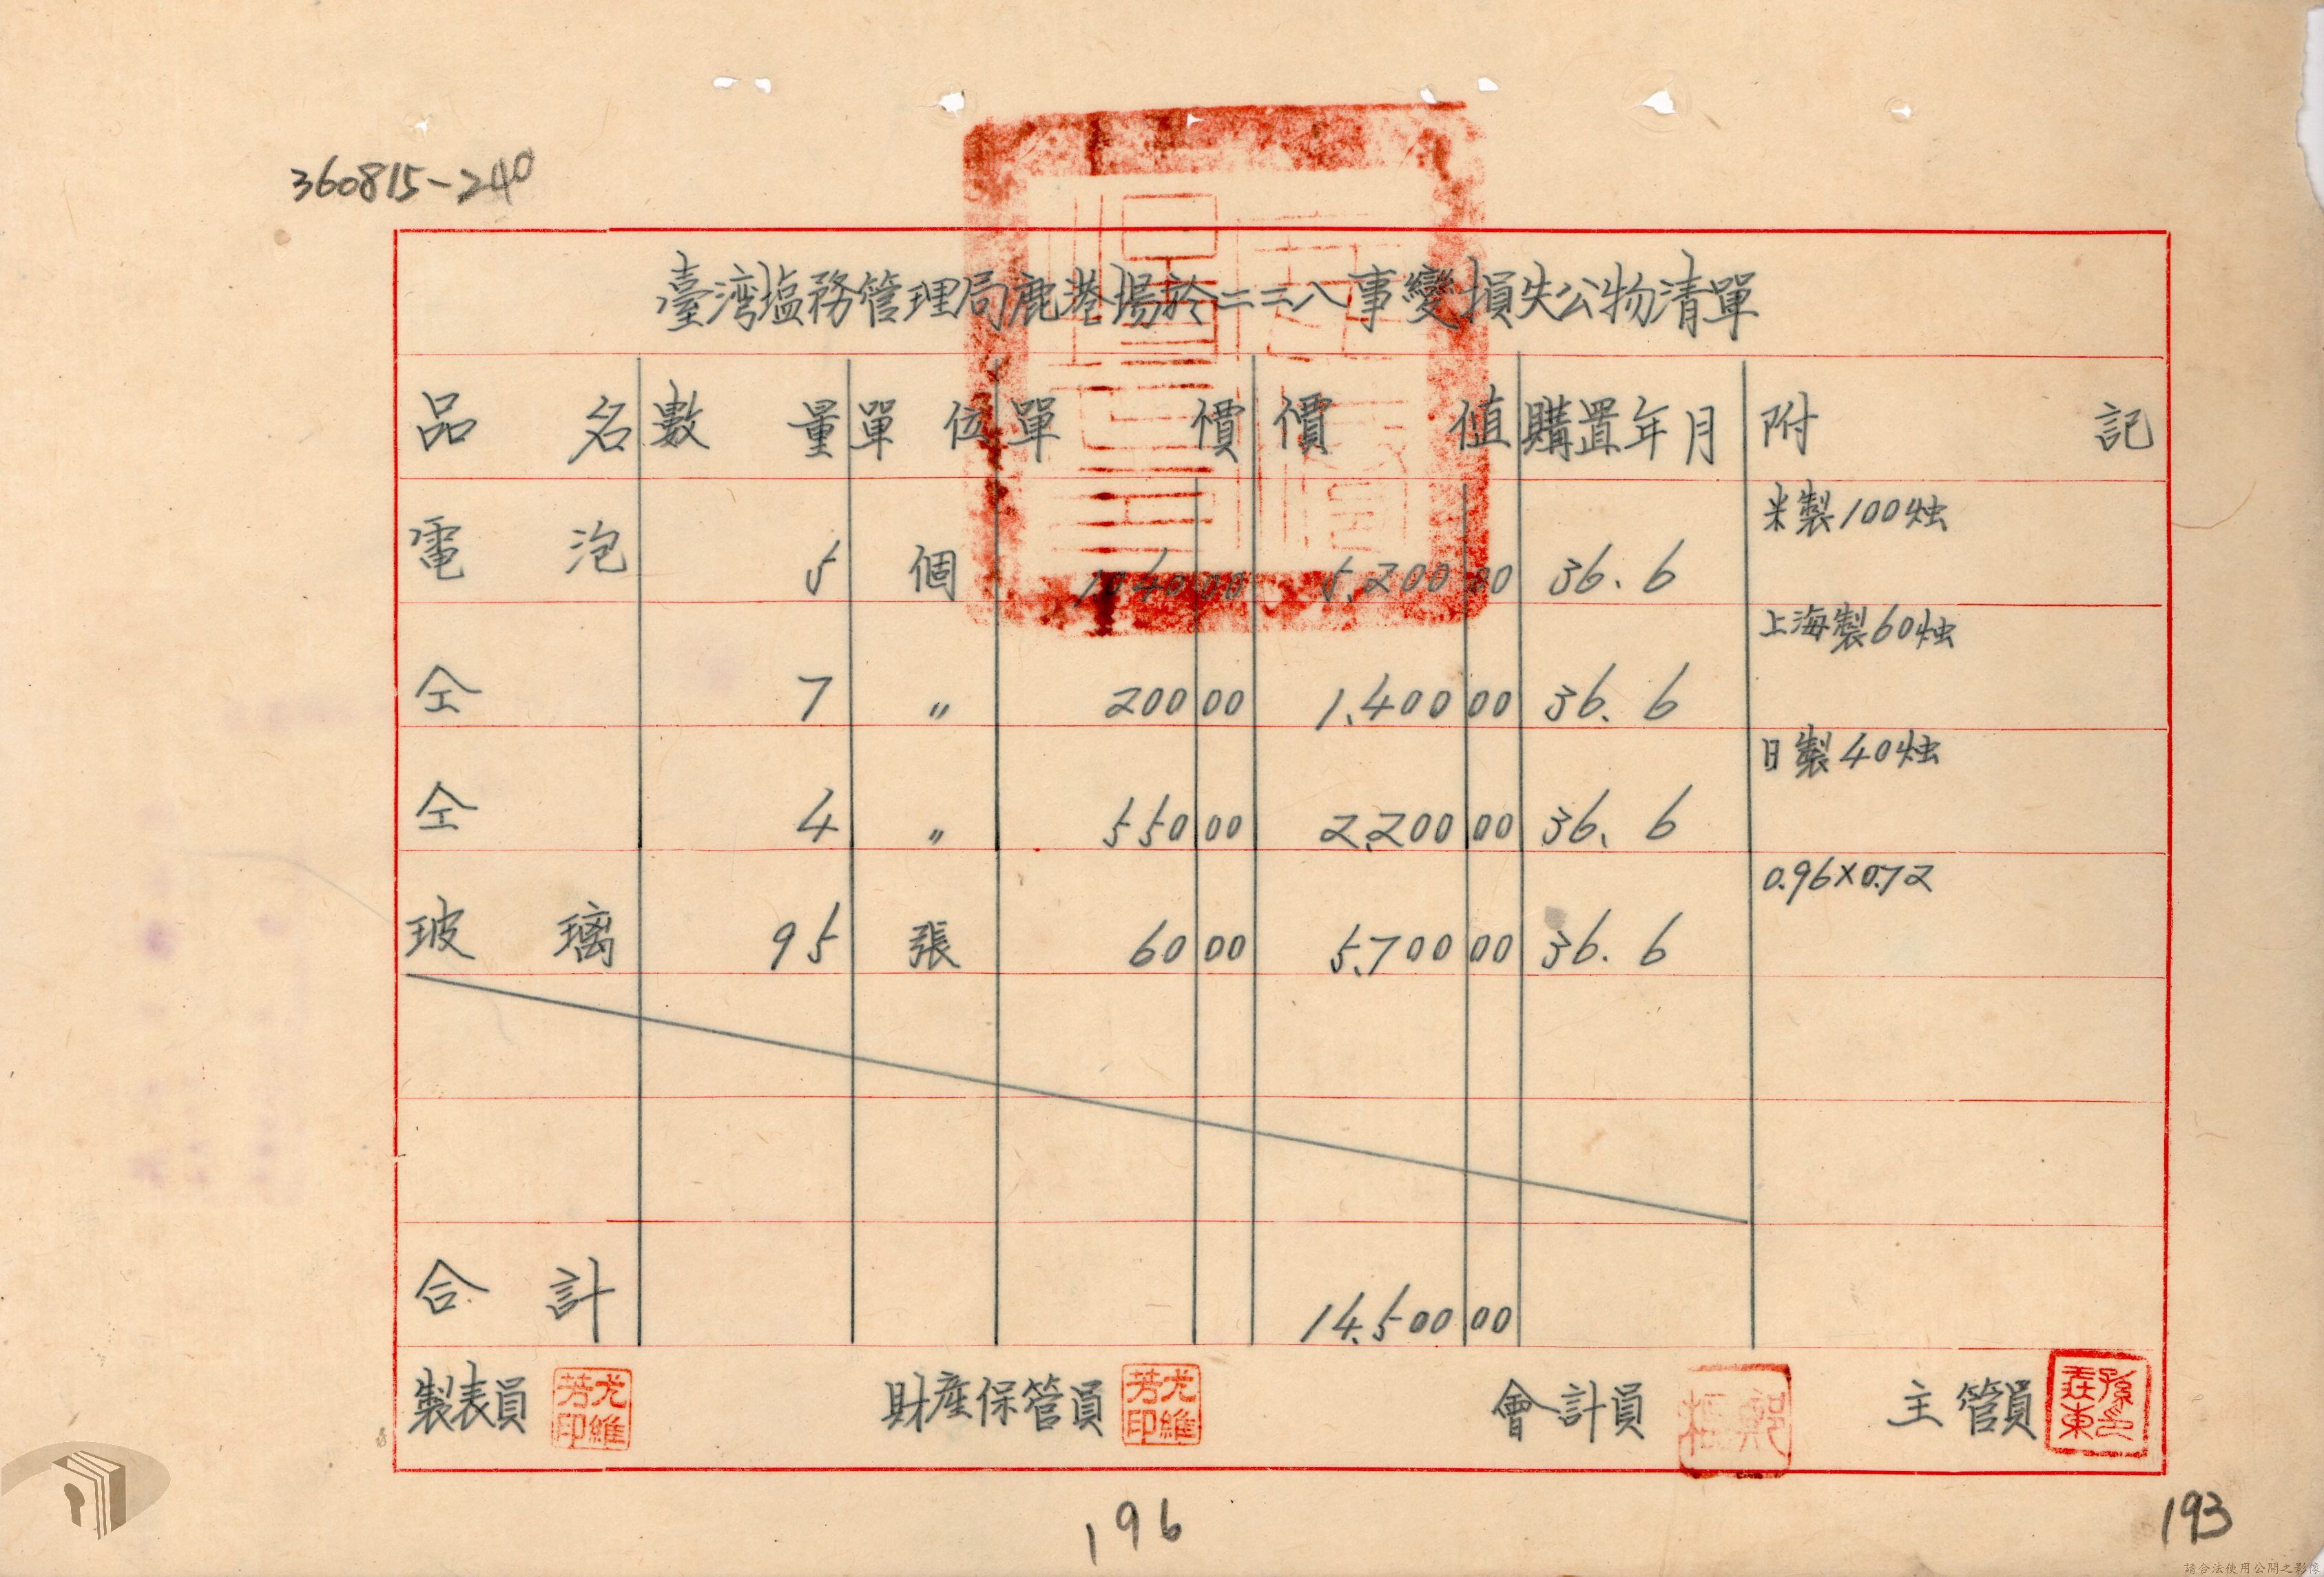 360815-240
臺湾塩務管理局鹿港場於二二八事變損失公物清單
品名 數量 單位 單價 價值 購置年月 附記
電泡 5 個 1040 00 5,200 00 36.6 米製100烛
仝 7 〃 200 00 1,400 00 36.6 上海製60烛
仝 4 〃 550 00 2,200 00 36.6 日製40烛
玻璃 95 張 60 00 5,700 00 36.6 0.96×0.72
合計 14,500 00
製表員 尤維芳印 財產保管員 尤維芳印 會計員 主管員
196
193
請合法使用公開之影像